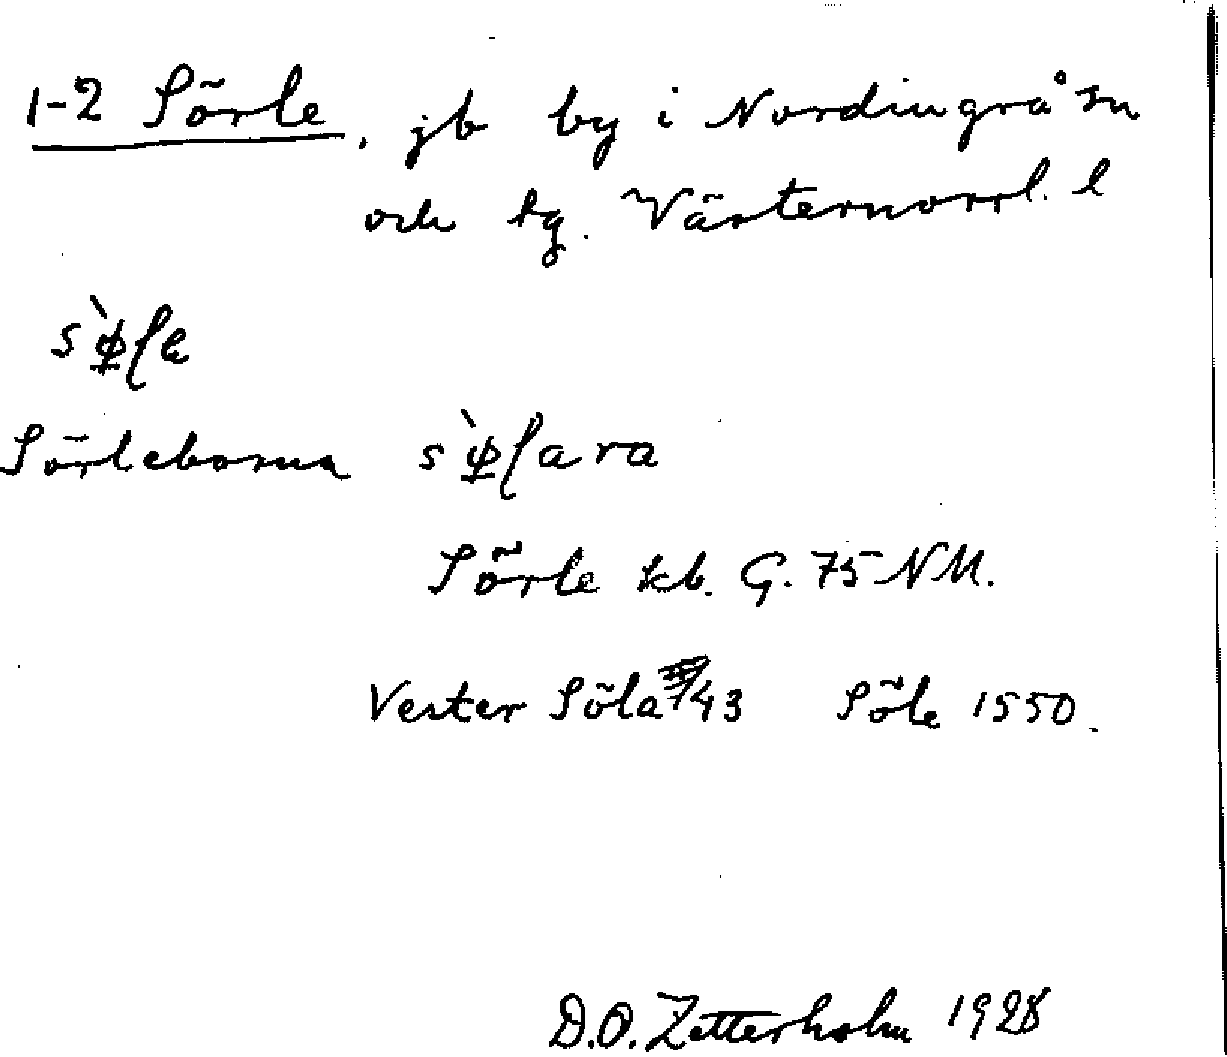 1-2 Sörle, jb by i Nordingrå sn
och tg. Västernorrl. l
Sörleborna
Sörle kb. G. 75 NM.
Vester Söla 43 Söle 1550.
D.O. Zetterholm 1928